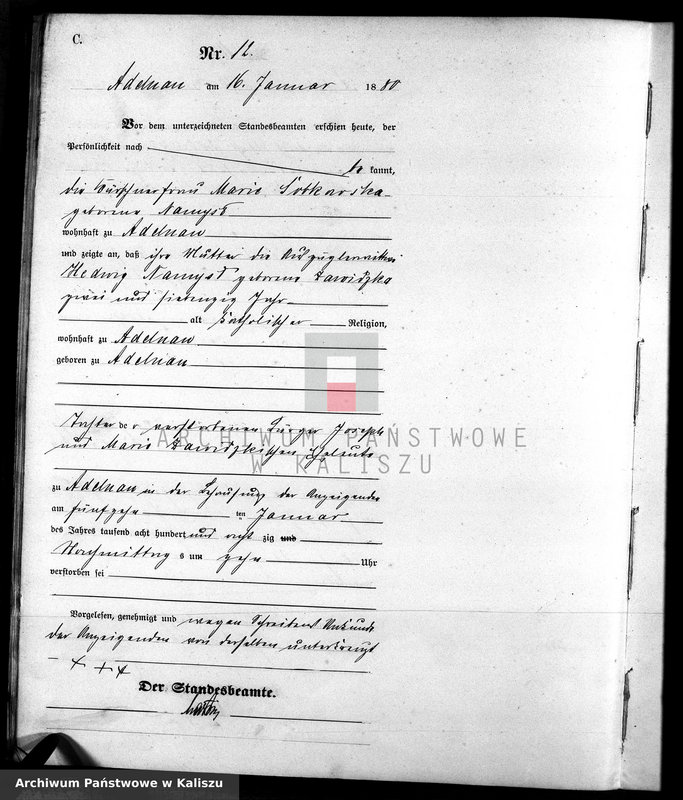 C.
Nr. 12.
Adelnau am 16. Januar 1880
Vor dem unterzeichneten Standesbeamten erschien heute, der
Persönlichkeit nach
be kannt,
die Kürschnerfrau Marie Sobkowska
geborene Namysł
wohnhaft zu Adelnau
und zeigte an, daß ihre Mutter die
Hedwig Namysł geborene Dawidzka
zwei und siebenzig Jahr
alt katholischer Religion,
wohnhaft zu Adelnau
geboren zu Adelnau
Tochter der verstorbenen Bürger Joseph
und Marie Dawidzkischen Eheleute
ARCHIWUM PAŃSTWOWE
W KALISZU
zu Adelnau in der Behausung der Anzeigenden
am fünfzehn ten Januar
des Jahres tausend acht hundert und acht zig und
Nachmittag s um zehn Uhr
verstorben sei
Vorgelesen, genehmigt und wegen Schreibens Unkunde
der Anzeigenden von derselben unterkreuzt
+ + +
Der Standesbeamte.
Archiwum Państwowe w Kaliszu